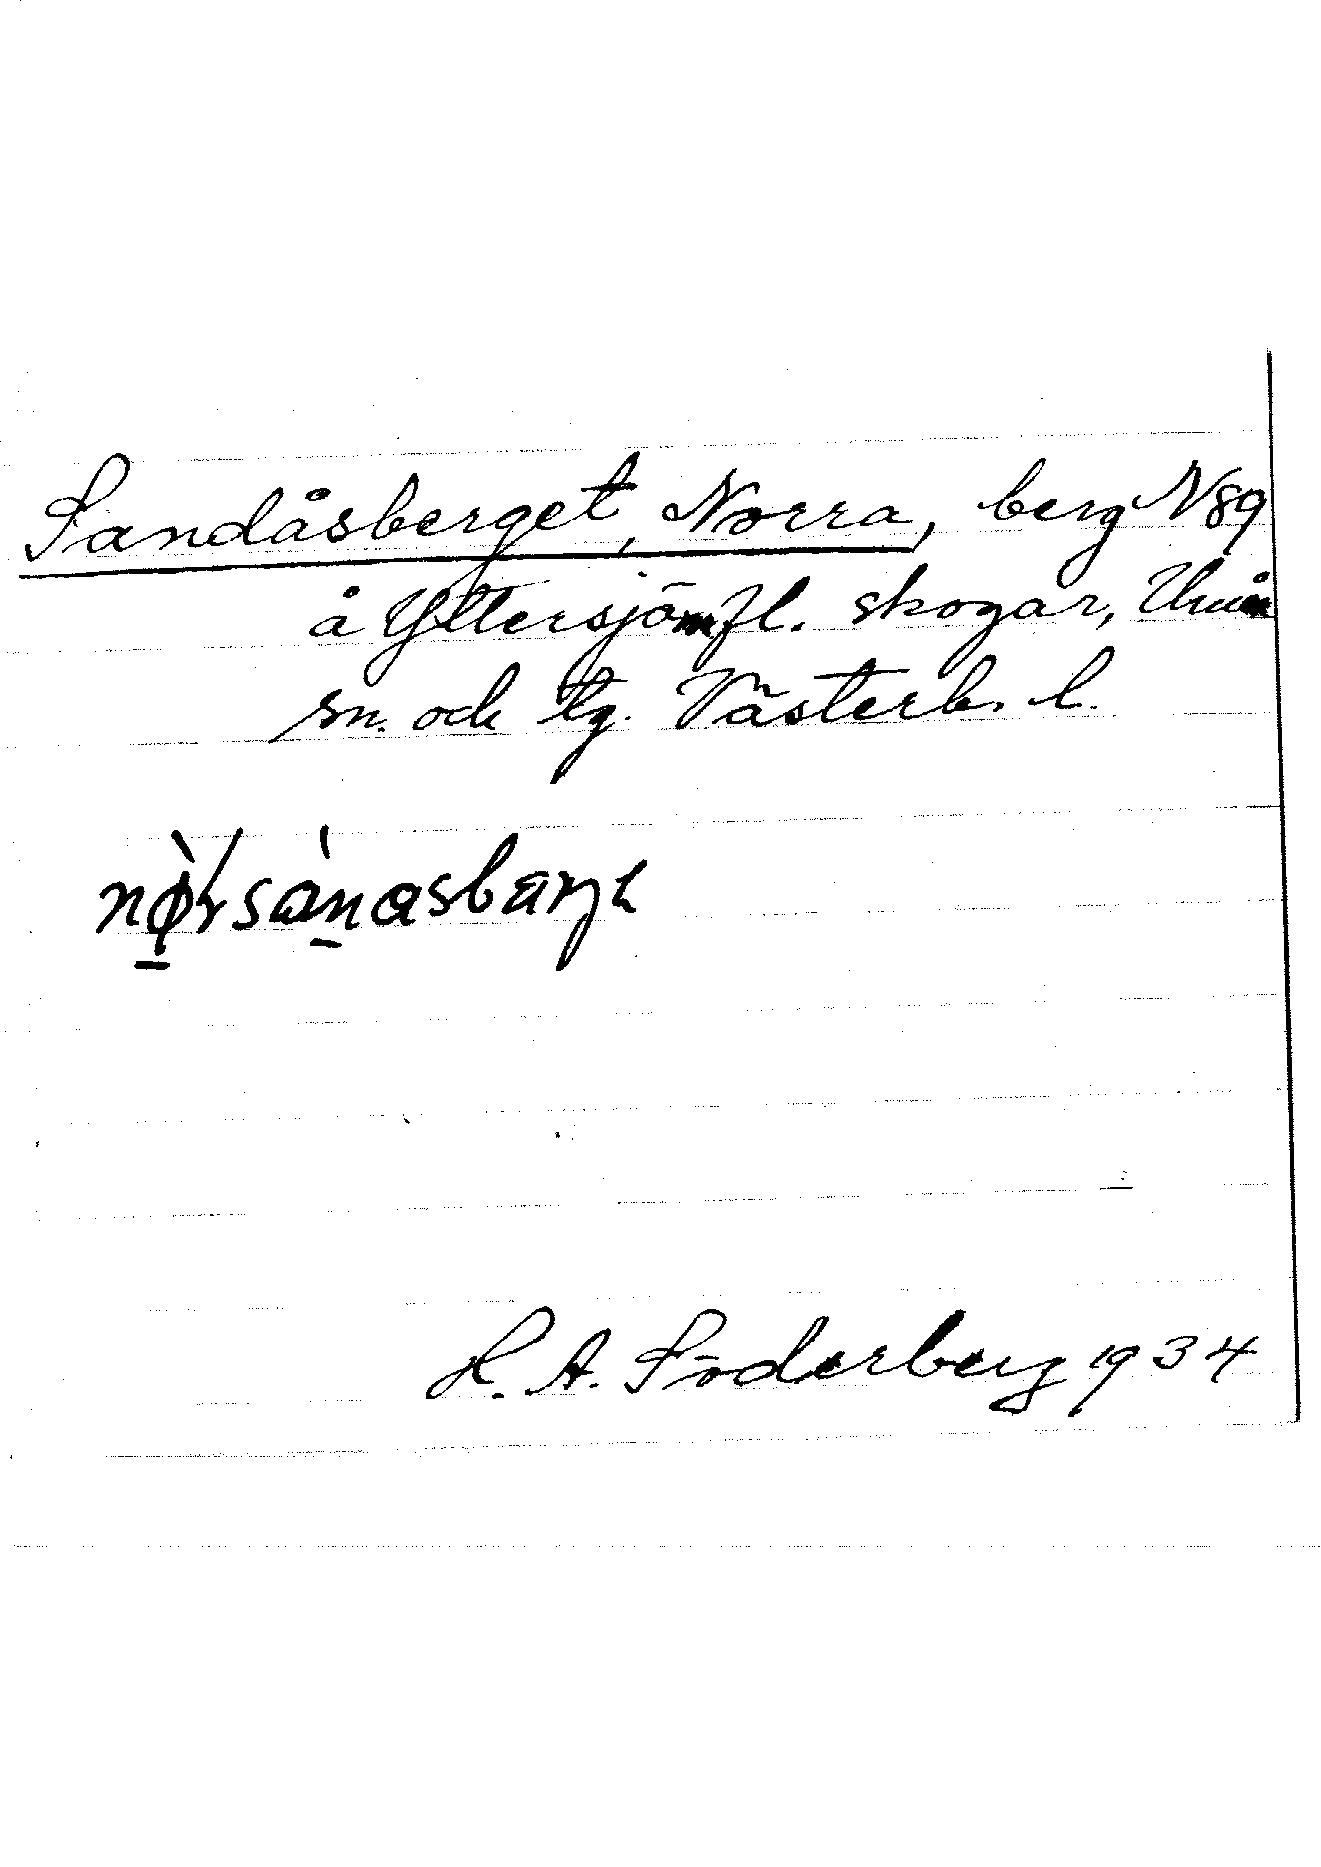 Sandåsberget, Norra, berg N89
å Yttersjöm fl. skogar, Umeå
sn. och tg. Västerb. l.
nø̀rsànasbærjɩ
L. A. Söderberg 1934